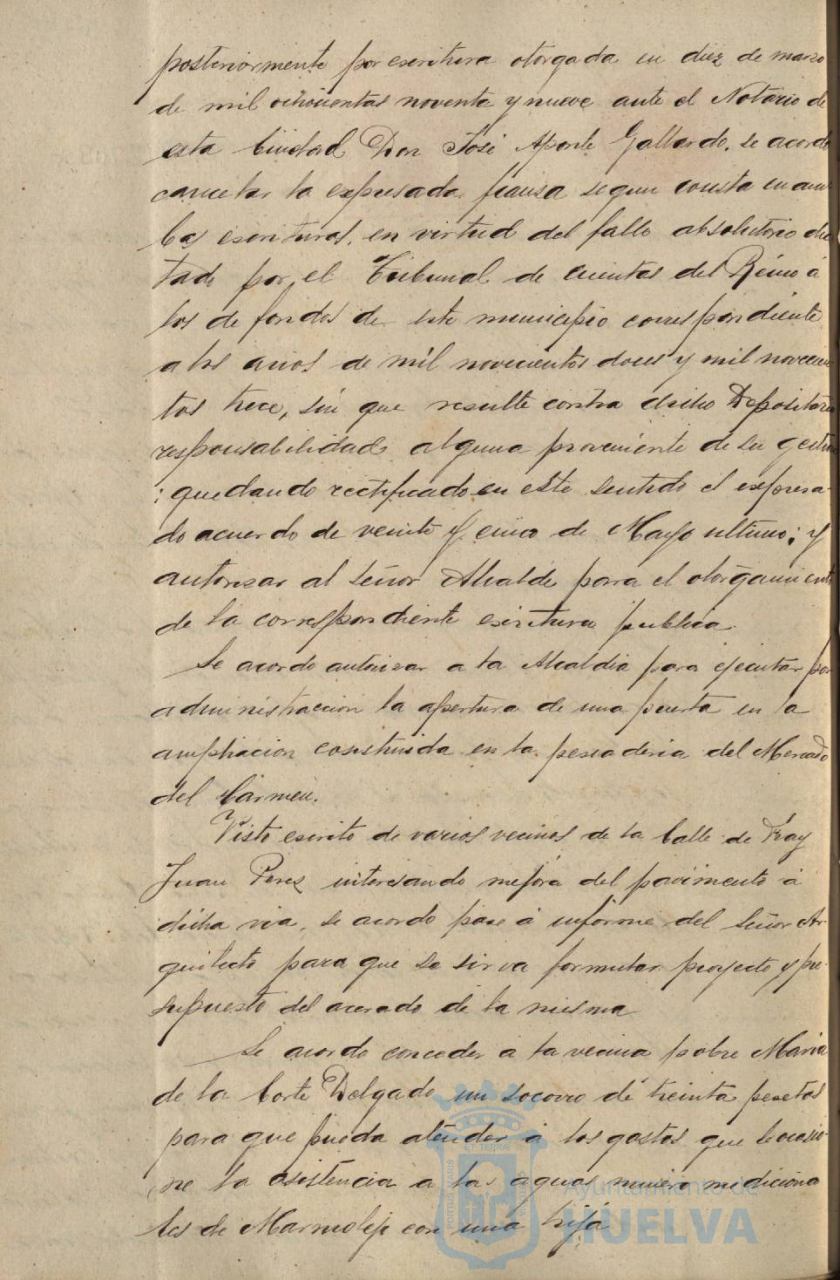 posteriormente por escritura otorgada en diez de marzo
de mil ochocientos noventa y nueve ante el Notario de
esta Ciudad Don José Aponte Gallardo, se acordó
cancelar la expresada fianza segun consta en am
bas escrituras, en virtud del fallo absolutorio dic
tado por el Tribunal de cuentas del Reino á
los de fondos de este municipio correspondiente
a los años de mil novecientos doce y mil novecien
tos trece, sin que resulte contra dicho Depositario
responsabilidad alguna proveniente de su gestion
; quedando rectificado en este sentido el expresa-
do acuerdo de veinte y cinco de Mayo ultimo; y
autorizar al Señor Alcalde para el otorgamiento
de la correspondiente escritura publica.
Se acordo autorizar a la Alcaldia para ejecutar por
administracion la apertura de una puerta en la
ampliacion construida en la pescaderia del Mercado
del Carmen.
Visto escrito de varios vecinos de la Calle de Fray
Juan Perez interesando mejora del pavimento á
dicha via, se acordo pase á informe del Señor Ar
quitecto para que se sirva formular proyecto y pre-
supuesto del acerado de la misma
Se acordo conceder á la vecina pobre Maria
de la Corte Delgado un socorro de treinta pesetas
para que pueda atender á los gastos que le ocasio-
ne la asistencia a las aguas minero medicina
les de Marmolejo con una hija
Ayuntamiento de
HUELVA